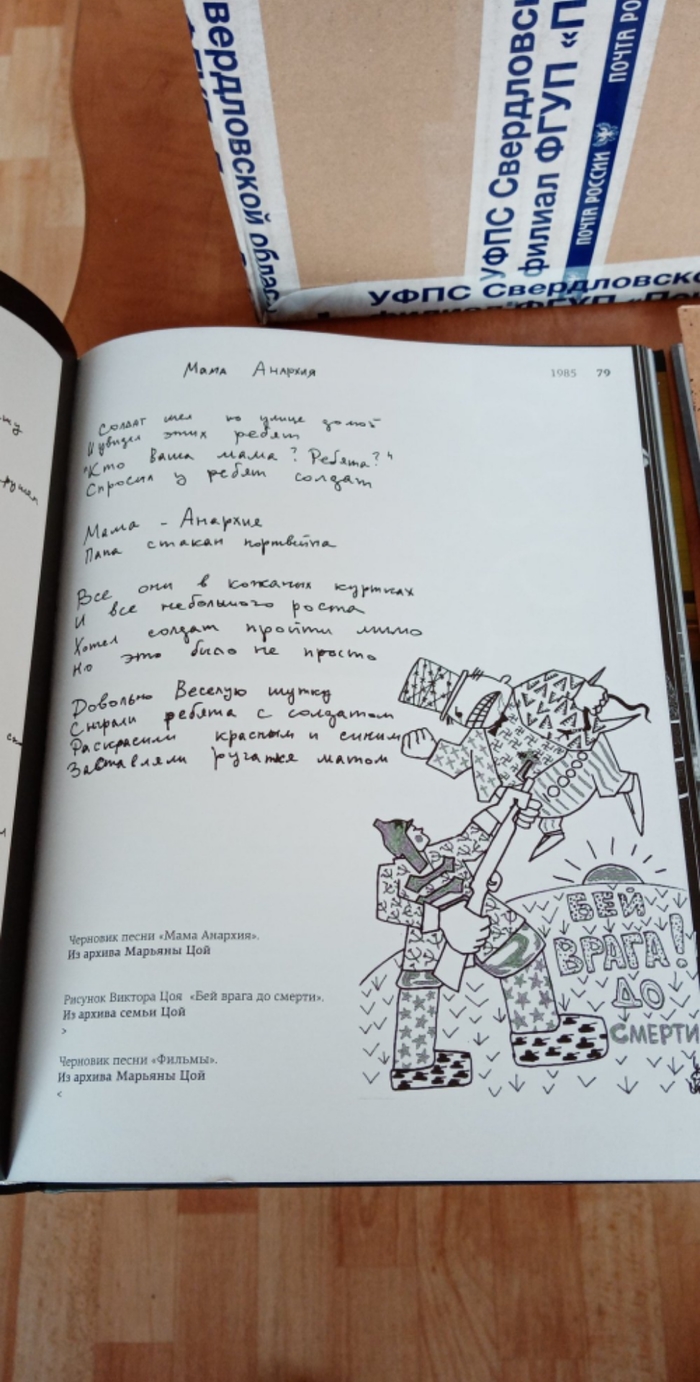 вердловской облас
УФПС Свердловск
филиал ФГУП «П
ПОЧТА РОССИИ
ПОЧТА РО
УФПС Свердловско
филиал ФГУП «По
Мама Анархия
1985 79
Солдат шел по улице домой
И увидел этих ребят
"Кто Ваша мама? Ребята?"
Спросил у ребят солдат
Мама - Анархие
Папа стакан портвейна
Все они в кожаных куртках
И все небольшого роста
Хотел солдат пройти мимо
Но это было не просто
Довольно Веселую шутку
Сыграли ребята с солдатом
Раскрасили красным и синим
Заставляли ругатже матом
БЕЙ
ВРАГА!
ДО
СМЕРТИ
Черновик песни «Мама Анархия».
Из архива Марьяны Цой
Рисунок Виктора Цоя «Бей врага до смерти».
Из архива семьи Цой
>
Черновик песни «Фильмы».
Из архива Марьяны Цой
<